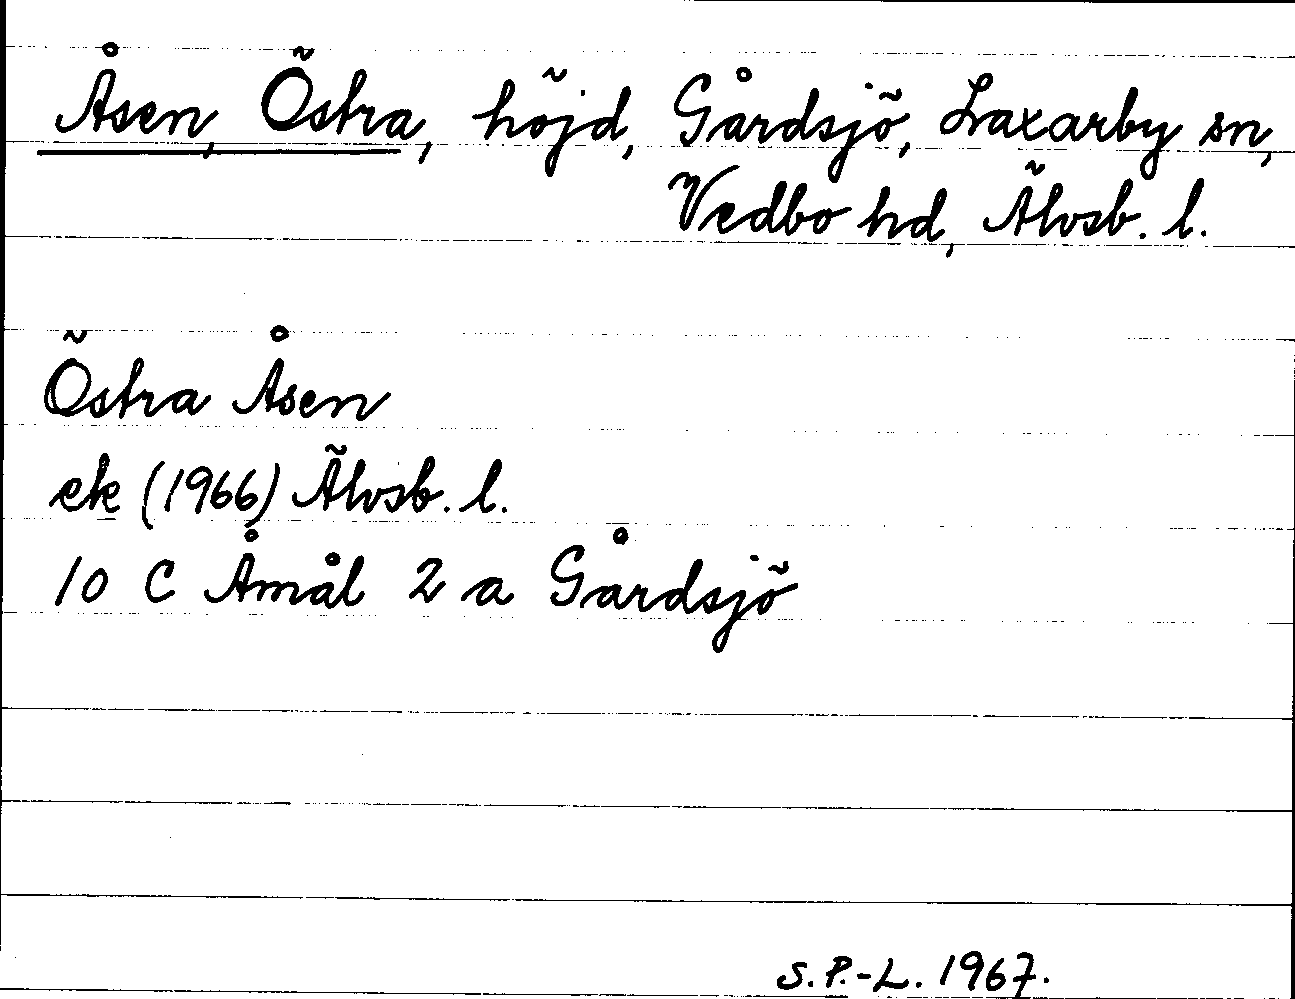 Åsen, Östra, höjd, Gårdsjö, Laxarby sn,
Vedbo hd, Älvsb. l.
Östra Åsen
ek (1966) Älvsb. l.
10 C Åmål 2 a Gårdsjö
S.P.-L. 1967.